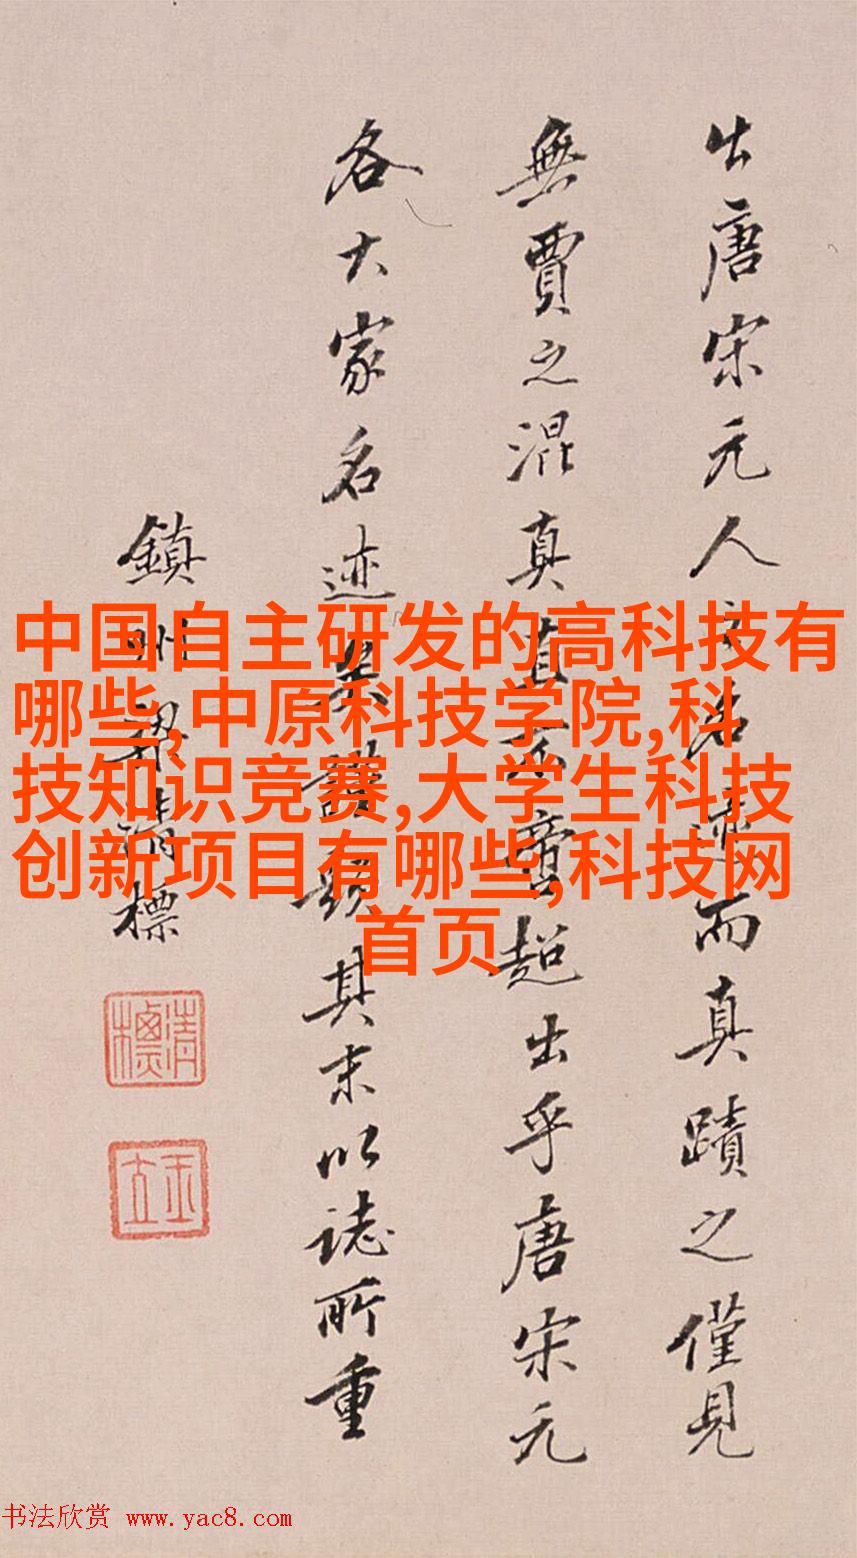 出唐宋元人名迹而真蹟之僅見
無賈之混真直超出乎唐宋元
各大家名迹矣謹其末以誌所重
鎮州梁清標
清標
玉立
中国自主研发的高科技有
哪些,中原科技学院,科
技知识竞赛,大学生科技
创新项目有哪些,科技网
首页
书法欣赏 www.yac8.com